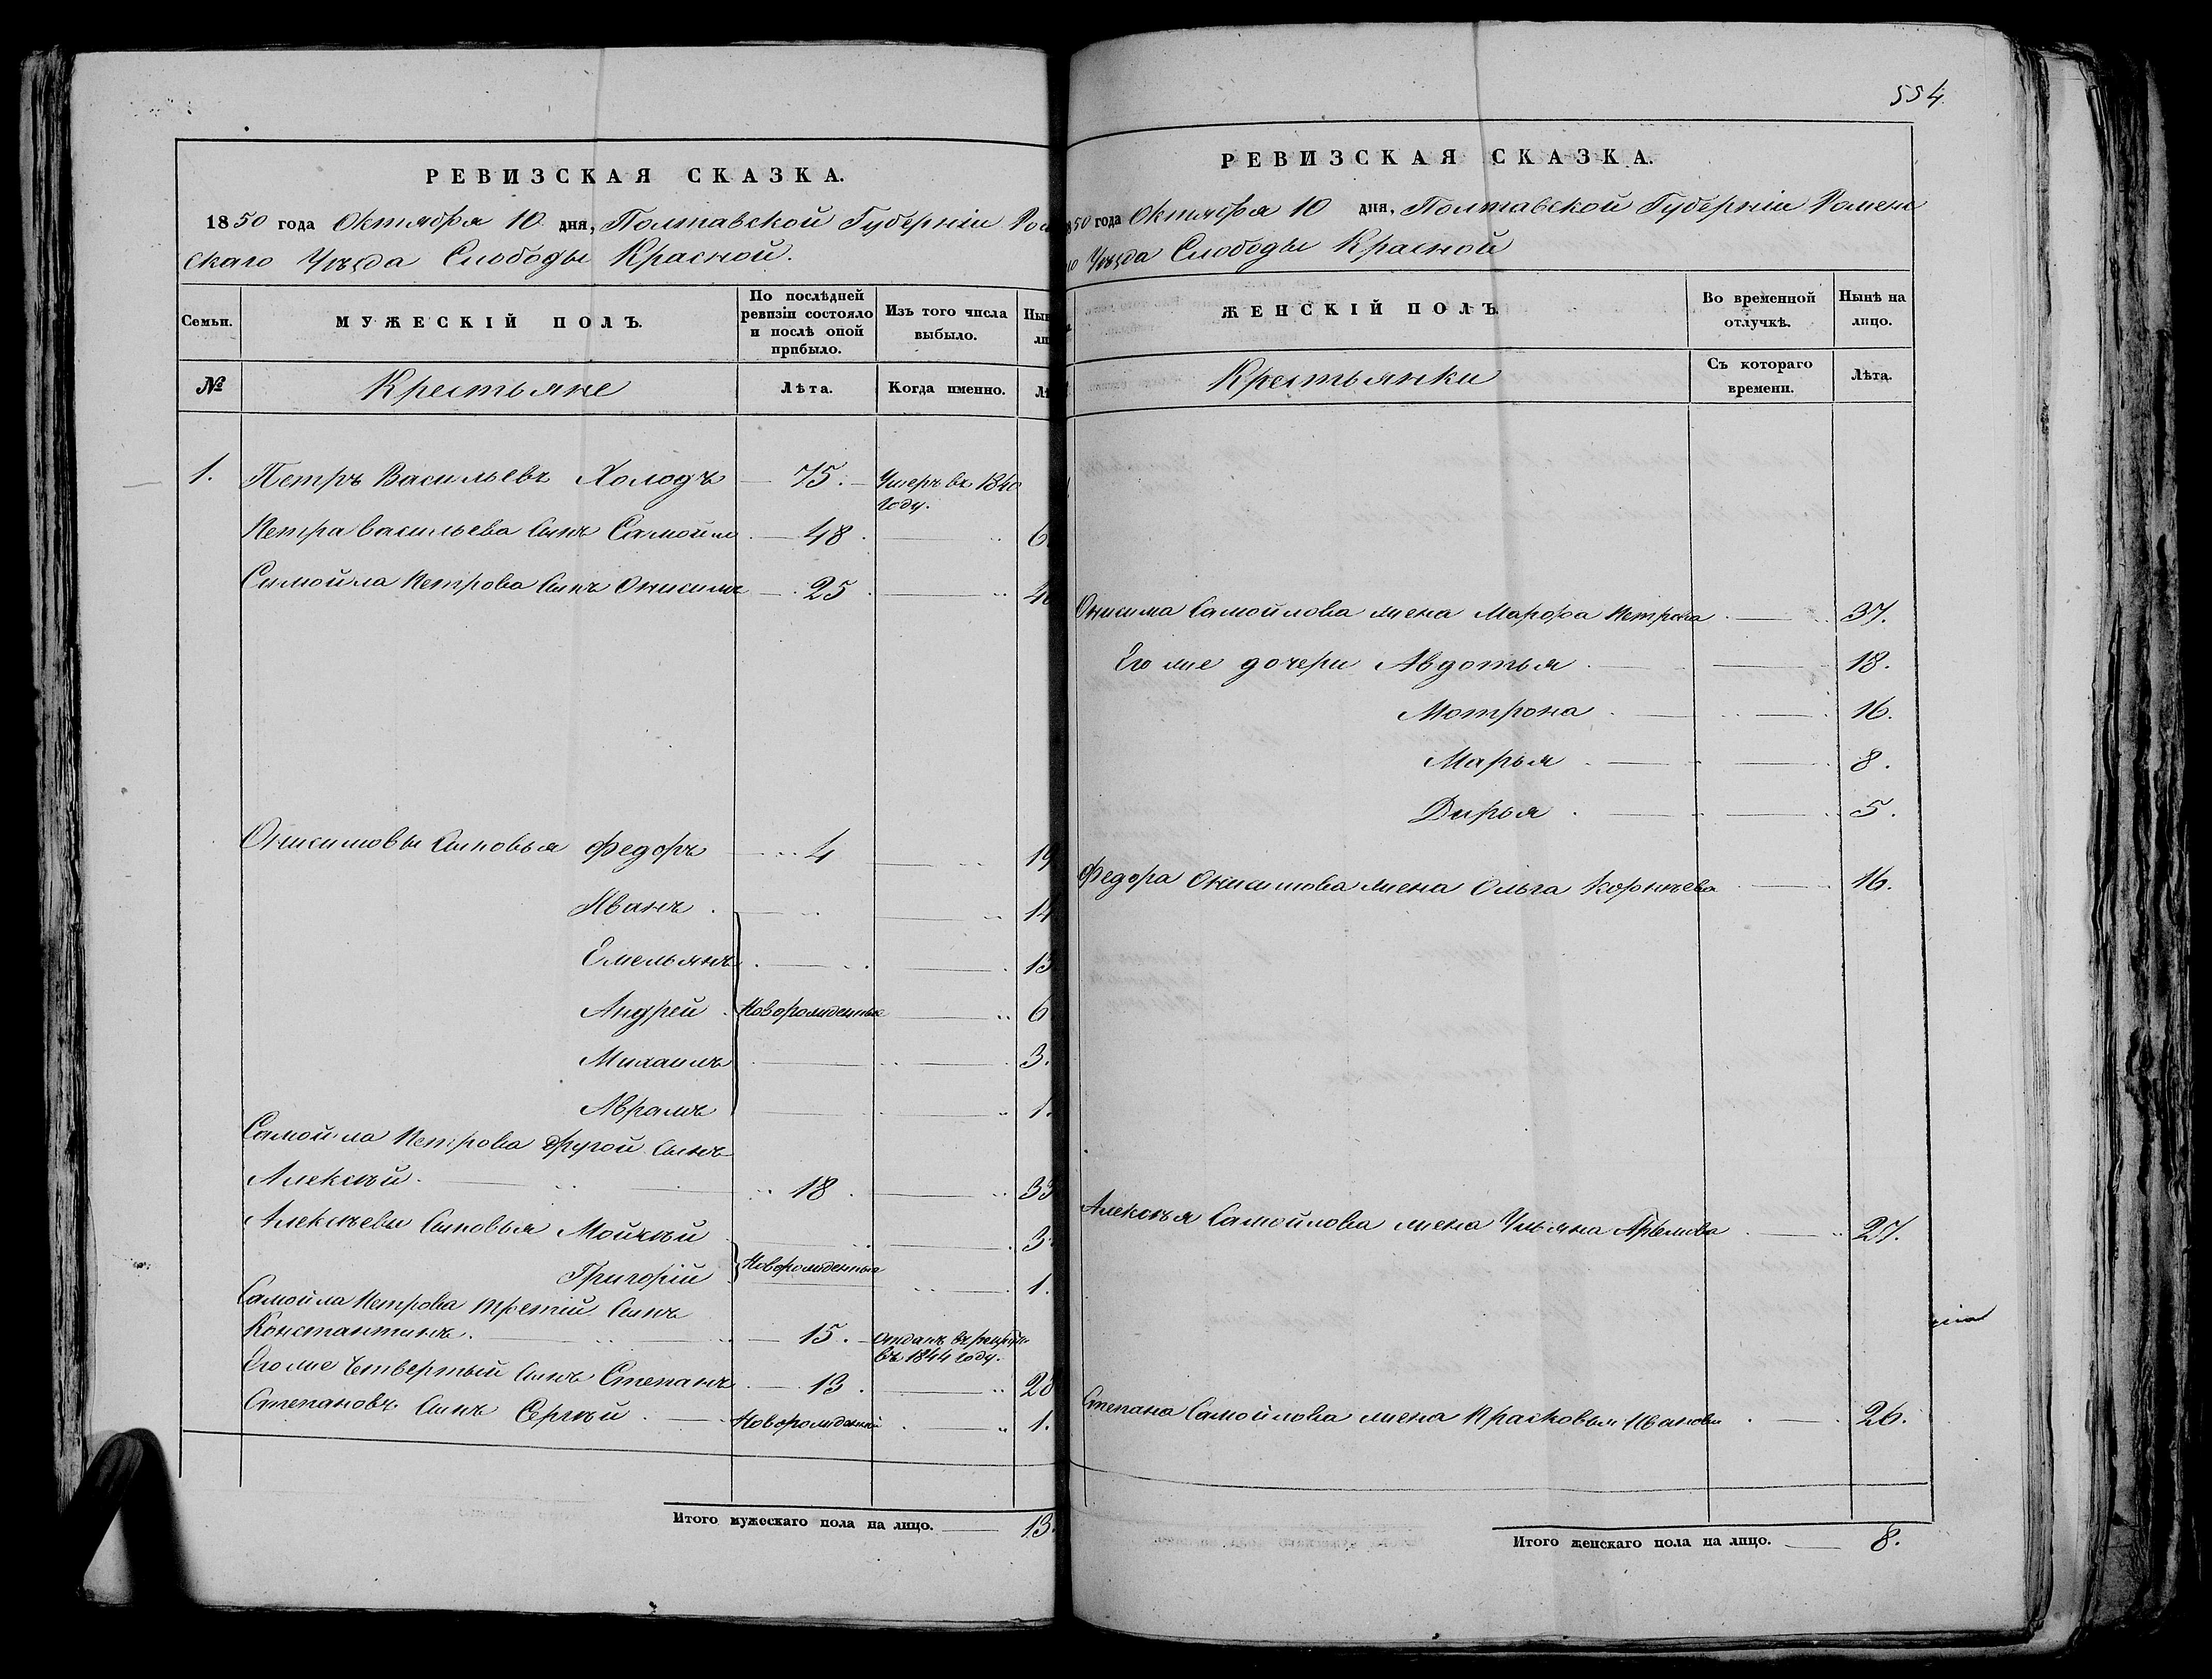 РЕВИЗСКАЯ СКАЗКА.
1850 года Октября 10 дня, Полтавской Губерніи Ром
скаго Уѣзда Слободы Красной.
Семьи.
МУЖЕСКІЙ ПОЛЪ.
По послѣдней
ревизіи состояло
и послѣ оной
прибыло.
Изъ того числа
выбыло.
Нын
ли
№
Крестьяне
Лѣта.
Когда именно.
Лѣ
1. Петръ Васильевъ Холодъ 75. Умеръ въ 1840
году.
Петра Васильева Сынъ Самойло 48. 6
Самойла Петрова Сынъ Онисимъ 25 40
Онисимовы Сыновья Федоръ 4 19
Иванъ 14
Емельянъ 13
Андрей Новорожденные 6
Михаилъ 3.
Аврамъ 1.
Самойла Петрова другой Сынъ
Алексѣй. 18. 33
Алексѣевы Сыновья Мойсѣй 3
Григорій Новорожденные 1.
Самойла Петрова третій Сынъ
Константинъ. 15. отданъ въ рекруты
въ 1844 году.
Его же четвертый Сынъ Степанъ 13. 28
Степановъ Сынъ Сергѣй Новорожденный 1.
Итого мужескаго пола на лицо. 13.
554
РЕВИЗСКАЯ СКАЗКА.
850 года Октября 10 дня, Полтавской Губерніи Роменс
го Уѣзда Слободы Красной
ЖЕНСКІЙ ПОЛЪ.
Во временной
отлучкѣ.
Нынѣ на
лицо.
Крестьянки
Съ котораго
времени.
Лѣта.
Онисима Самойлова жена Марфа Петрова 37.
Его же дочери Авдотья 18.
Мотрона 16.
Марья 8.
Дарья 5.
Федора Онисимова жена Ольга Корнѣева 16.
Алексѣя Самойлова жена Ульяна 27.
Степана Самойлова жена Прасковья Иванова 26.
Итого женскаго пола на лицо. 8.